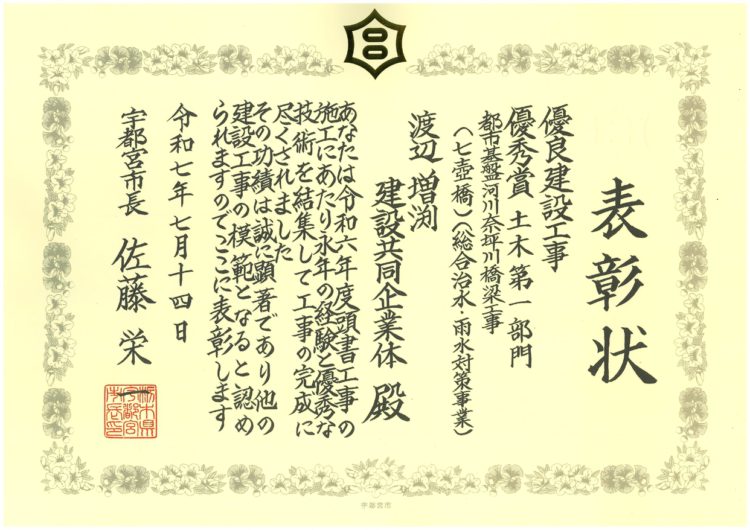 表彰状
優良建設工事
優秀賞 土木第一部門
都市基盤河川奈坪川橋梁工事
（七壺橋）（総合治水・雨水対策事業）
渡辺 増渕
建設共同企業体 殿
あなたは令和六年度頭書工事の
施工にあたり永年の経験と優秀な
技術を結集して工事の完成に
尽くされました
その功績は誠に顕著であり他の
建設工事の模範となると認め
られますのでここに表彰します
令和七年七月十四日
宇都宮市長 佐藤栄一
栃木県
宇都宮
市長印
宇都宮市